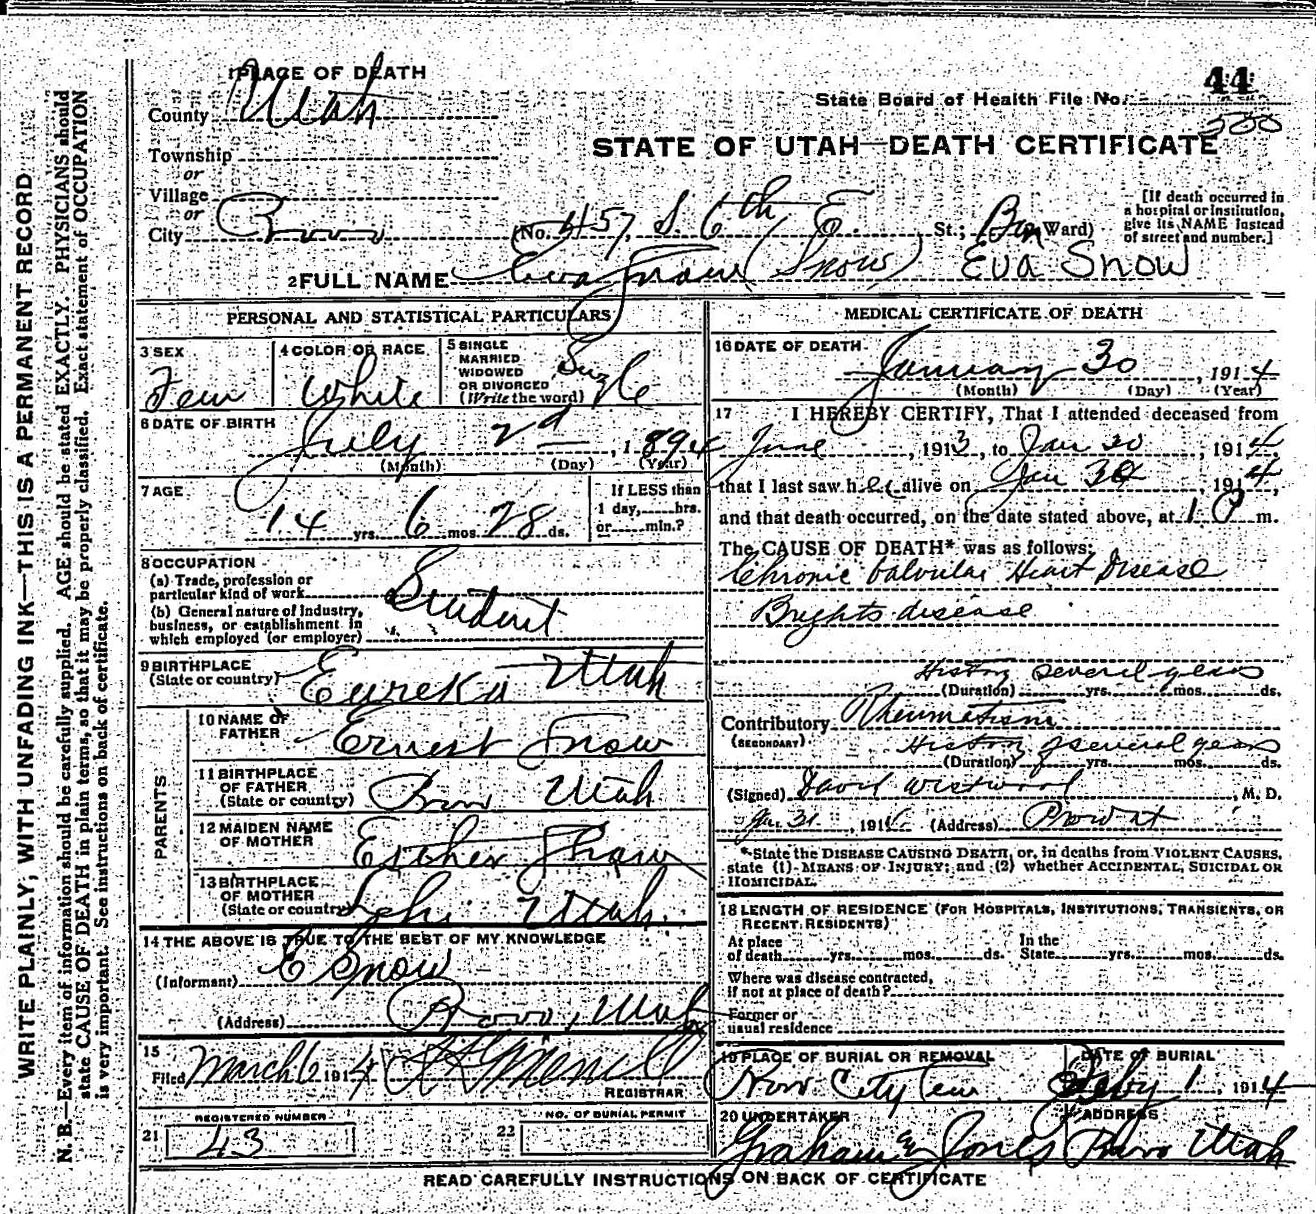 1 PLACE OF DEATH
44
County Utah
State Board of Health File No.
500
STATE OF UTAH—DEATH CERTIFICATE
Township
or
Village
or
City Provo (No. 457, S. 6th E. St.; Ward)
[If death occurred in
a hospital or institution,
give its NAME instead
of street and number.]
2 FULL NAME Eva Snow (Snow) Eva Snow
PERSONAL AND STATISTICAL PARTICULARS
3 SEX Fem
4 COLOR OR RACE White
5 SINGLE
MARRIED
WIDOWED
OR DIVORCED
(Write the word)
Single
6 DATE OF BIRTH
July 2d, 1
(Month) (Day) (Year)
7 AGE
14 yrs. 6 mos. 28 ds.
If LESS than
1 day, hrs.
or min.?
8 OCCUPATION
(a) Trade, profession or
particular kind of work
(b) General nature of industry,
business, or establishment in
which employed (or employer)
Student
9 BIRTHPLACE
(State or country) Eureka Utah
PARENTS
10 NAME OF
FATHER Ernest Snow
11 BIRTHPLACE
OF FATHER
(State or country) Provo Utah
12 MAIDEN NAME
OF MOTHER Esther
13 BIRTHPLACE
OF MOTHER
(State or country) Nephi Utah.
14 THE ABOVE IS TRUE TO THE BEST OF MY KNOWLEDGE
(Informant) E Snow
(Address) Provo, Utah
15
Filed March 6 1914
REGISTRAR
REGISTERED NUMBER
21 43
NO. OF BURIAL PERMIT
22
MEDICAL CERTIFICATE OF DEATH
16 DATE OF DEATH
January 30, 1914
(Month) (Day) (Year)
17 I HEREBY CERTIFY, That I attended deceased from
June, 1913, to Jan 30, 1914,
that I last saw her alive on Jan 30, 1914,
and that death occurred, on the date stated above, at 1 P m.
The CAUSE OF DEATH* was as follows:
Chronic Valvular Heart Disease
Brights disease
History several years
(Duration) yrs. mos. ds.
Contributory Rheumatism
(SECONDARY) History of several years
(Duration) yrs. mos. ds.
(Signed) David Westwood, M. D.
Jan 31, 1914 (Address) Provo ut
*State the DISEASE CAUSING DEATH, or, in deaths from VIOLENT CAUSES,
state (1) MEANS OF INJURY; and (2) whether ACCIDENTAL, SUICIDAL OR
HOMICIDAL.
18 LENGTH OF RESIDENCE (FOR HOSPITALS, INSTITUTIONS, TRANSIENTS, OR
RECENT RESIDENTS)
At place
of death yrs. mos. ds.
In the
State yrs. mos. ds.
Where was disease contracted,
if not at place of death?
Former or
usual residence
19 PLACE OF BURIAL OR REMOVAL
Provo City Cem
DATE OF BURIAL
Feby 1, 1914
20 UNDERTAKER
Graham & Jones
ADDRESS
Provo Utah
READ CAREFULLY INSTRUCTIONS ON BACK OF CERTIFICATE
WRITE PLAINLY, WITH UNFADING INK—THIS IS A PERMANENT RECORD
N. B.—Every item of information should be carefully supplied. AGE should be stated EXACTLY. PHYSICIANS should
state CAUSE OF DEATH in plain terms, so that it may be properly classified. Exact statement of OCCUPATION
is very important. See instructions on back of certificate.